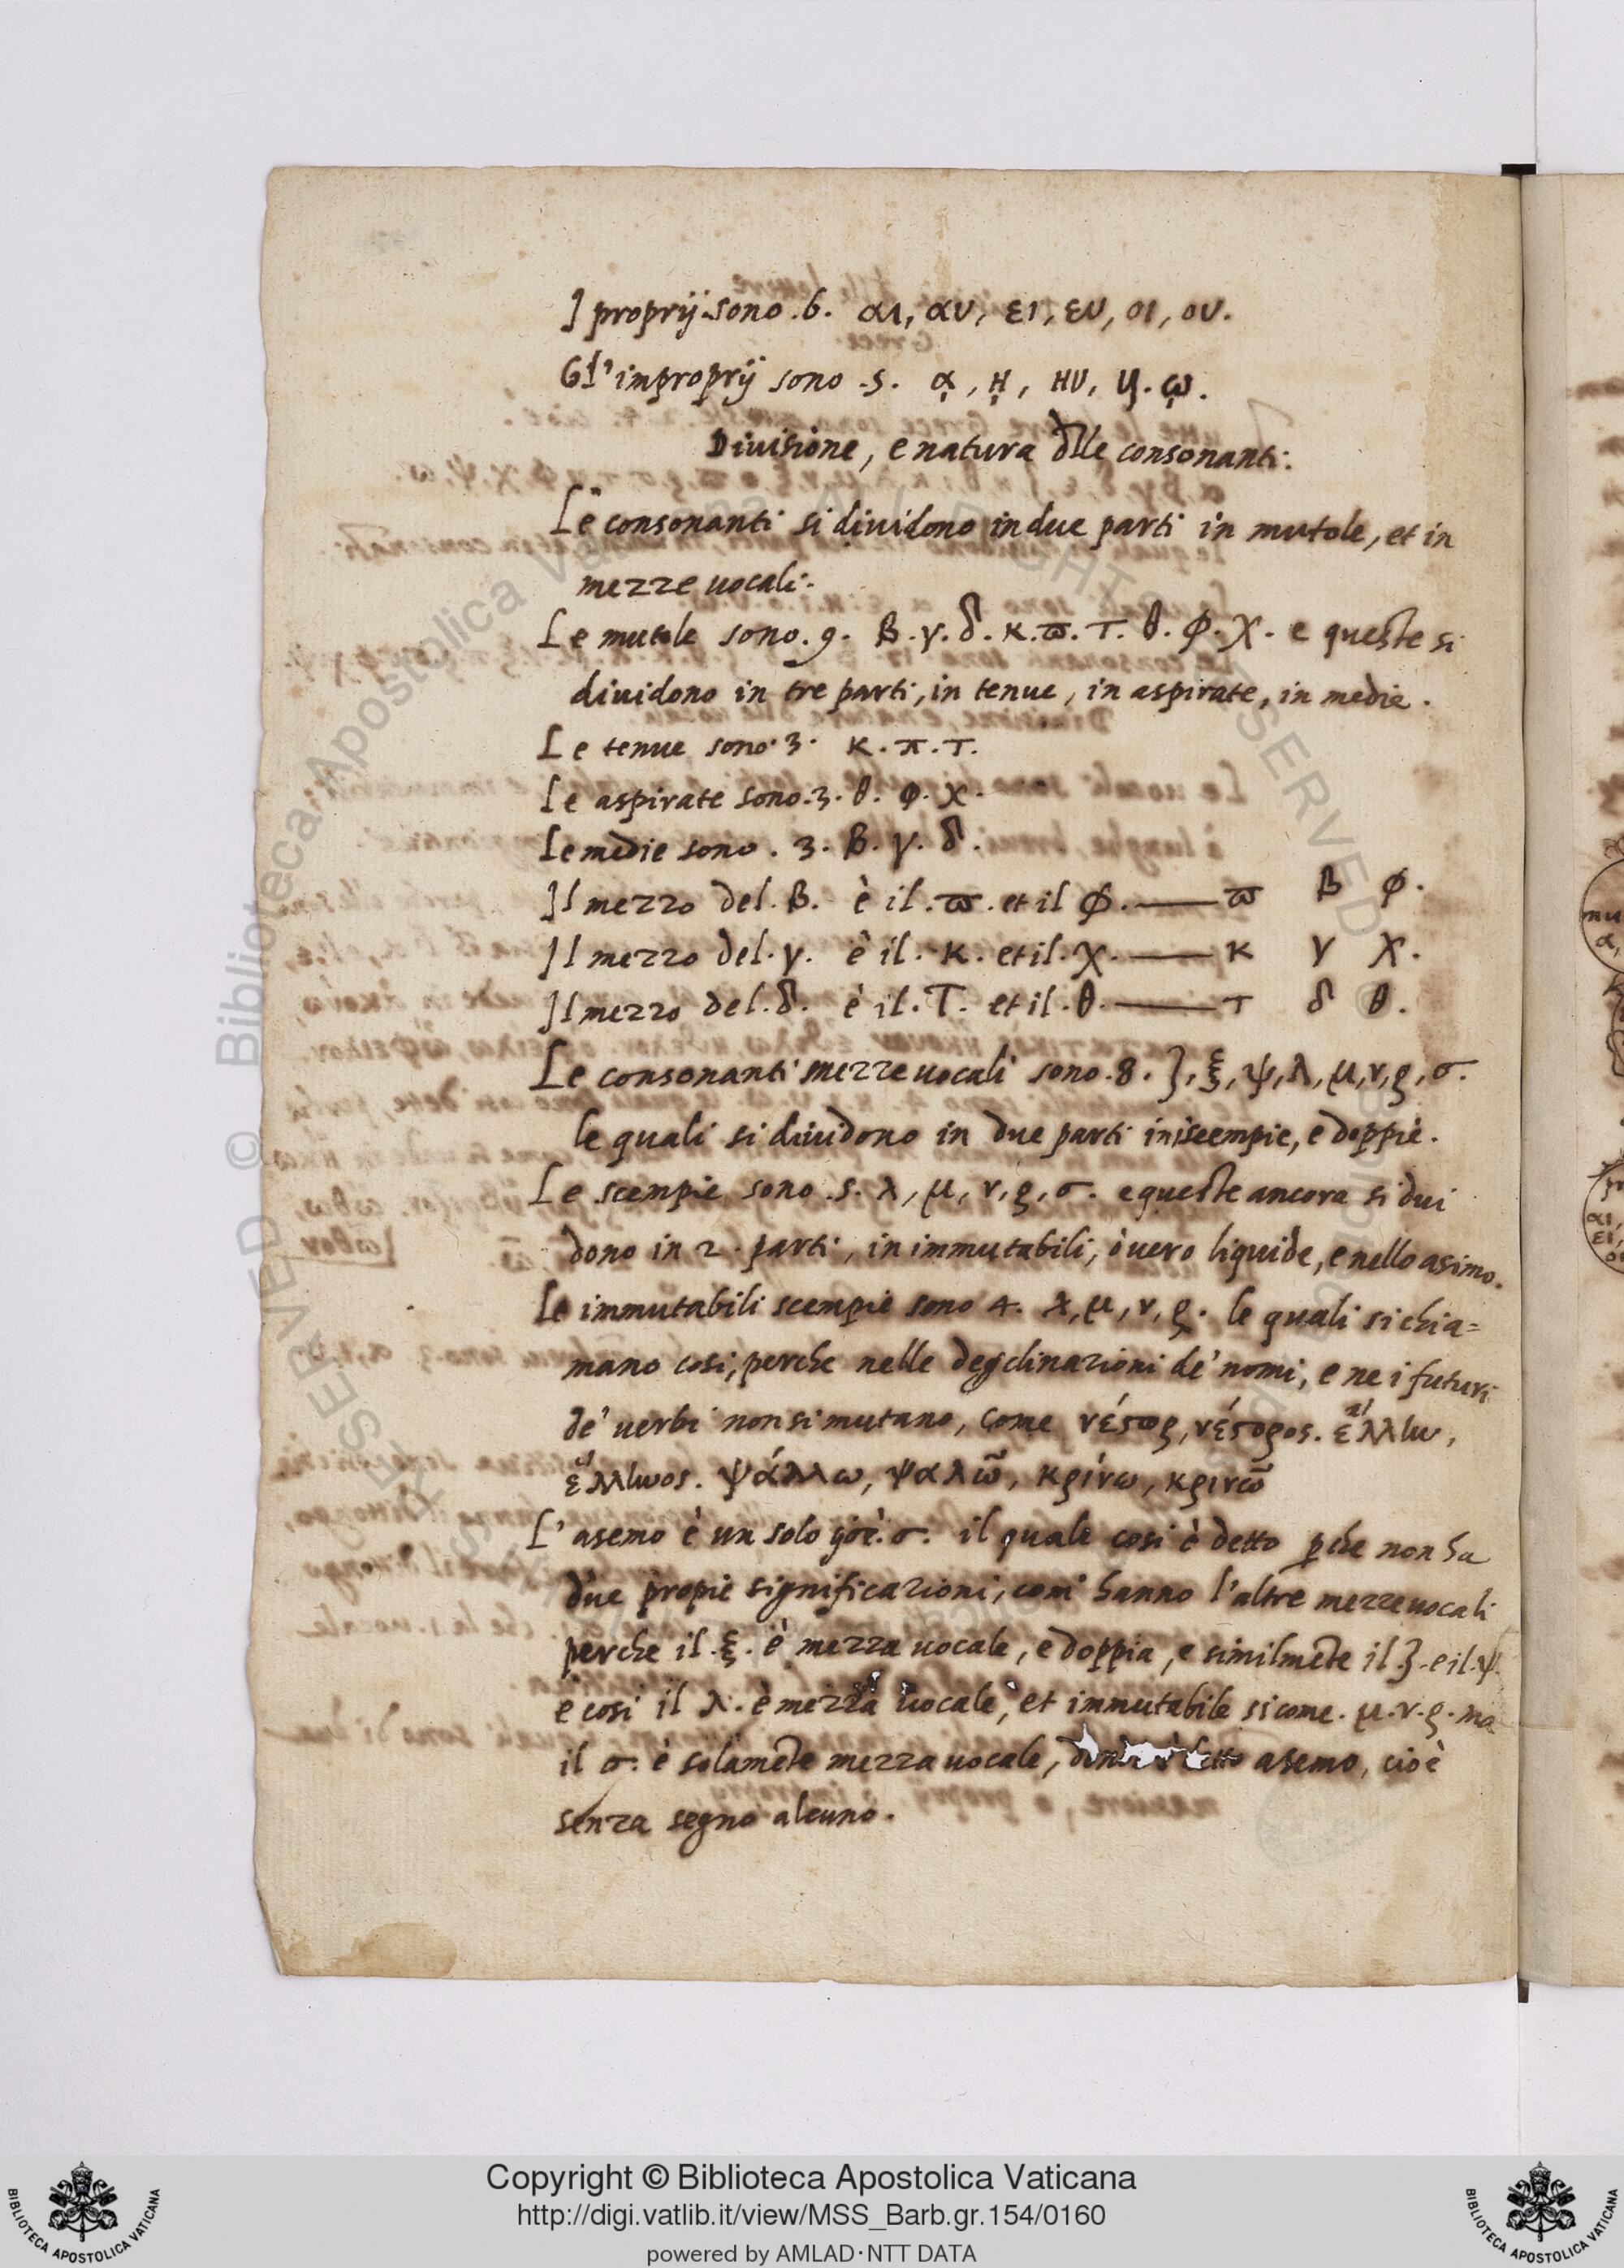 I proprij sono .6. αι, αυ, ει, ευ, οι, ου.
Gl' improprij sono .5. ᾳ, ῃ, ηυ, υι. ῳ.
Diuisione, e natura dlle consonanti.
Le consonanti si diuidono in due parti in mutole, et in
mezze uocali.
Le mutole sono .9. β.γ.δ.κ.ϖ.τ.θ.φ.χ. e queste si
diuidono in tre parti, in tenue, in aspirate, in medie.
Le tenue sono 3. κ.π.τ.
Le aspirate sono .3. θ. φ. χ.
Le medie sono . 3. β. γ. δ.
Il mezzo del. β. è il. ϖ. et il φ. — ϖ β φ.
Il mezzo del. γ. è il. κ. et il. χ. — κ γ χ.
Il mezzo del. δ. è il. τ. et il. θ. — τ δ θ.
Le consonanti mezze uocali sono .8. ζ, ξ, ψ, λ, μ, ν, ρ, σ.
le quali si diuidono in due parti in scempie, e doppie.
Le scempie sono .5. λ, μ, ν, ρ, σ. e queste ancora si diui
dono in 2. parti, in immutabili, òuero liquide, e nello asimo.
Le immutabili scempie sono 4. λ, μ, ν, ρ. le quali si chia=
mano cosi, perche nelle degclinazioni de' nomi, e ne i futuri
de' uerbi non si mutano, come νέστωρ, νέστορος. ἕλλην,
ἕλληνος. ψάλλω, ψαλῶ, κρίνω, κρινῶ
L' asemo è un solo cioè. σ. il quale cosi è detto pche non ha
due propie significazioni, com' hanno l'altre mezze uocali
perche il. ξ. è mezza uocale, e doppia, e similmẽte il ζ. e il. ψ.
e cosi il λ. è mezza uocale, et immutabile si come. μ. ν. ρ. ma
il σ. è solamẽte mezza uocale, detto asemo, cioè
senza segno alcuno.
Copyright © Biblioteca Apostolica Vaticana
http://digi.vatlib.it/view/MSS_Barb.gr.154/0160
powered by AMLAD·NTT DATA
BIBLIOTECA APOSTOLICA VATICANA
BIBLIOTECA APOSTOLICA VATICANA